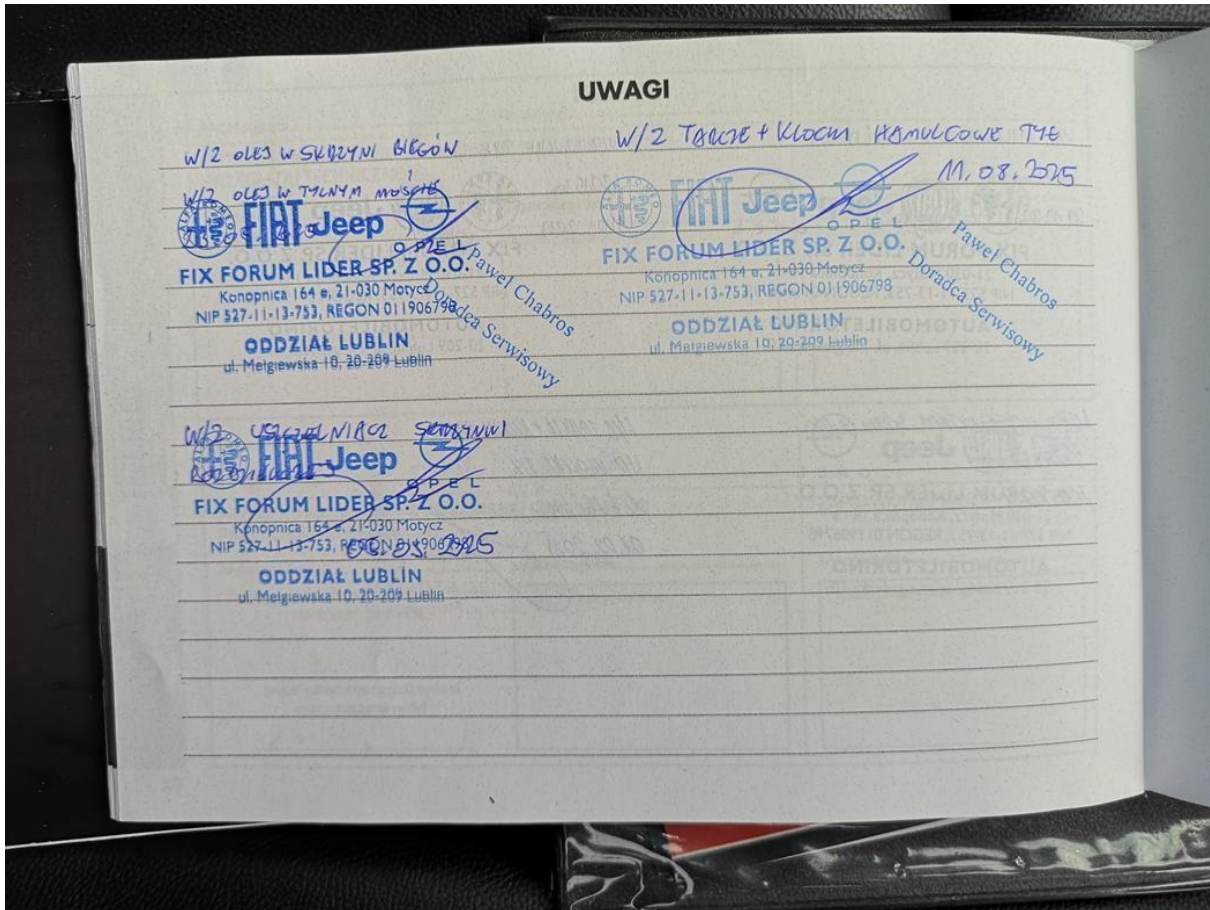 UWAGI
W/2 OLEJ W SKRZYNI BIEGÓW
W/2 OLEJ W TYLNYM MOŚCIE
ALFA ROMEO
FIAT Jeep
OPEL
FIX FORUM LIDER SP. Z O.O.
Konopnica 164 e, 21-030 Motycz
NIP 527-11-13-753, REGON 011906798
ODDZIAŁ LUBLIN
ul. Mełgiewska 10, 20-209 Lublin
Paweł Chabros
Doradca Serwisowy
W/2 TARCZE + KLOCKI HAMULCOWE TYŁ
11.08.2025
FIAT Jeep
OPEL
FIX FORUM LIDER SP. Z O.O.
Konopnica 164 e, 21-030 Motycz
NIP 527-11-13-753, REGON 011906798
ODDZIAŁ LUBLIN
ul. Mełgiewska 10, 20-209 Lublin
Paweł Chabros
Doradca Serwisowy
W/2 USZCZELNIACZ SKRZYNI
FIAT Jeep
OPEL
FIX FORUM LIDER SP. Z O.O.
Konopnica 164 e, 21-030 Motycz
NIP 527-11-13-753, REGON 011906798
ODDZIAŁ LUBLIN
ul. Mełgiewska 10, 20-209 Lublin